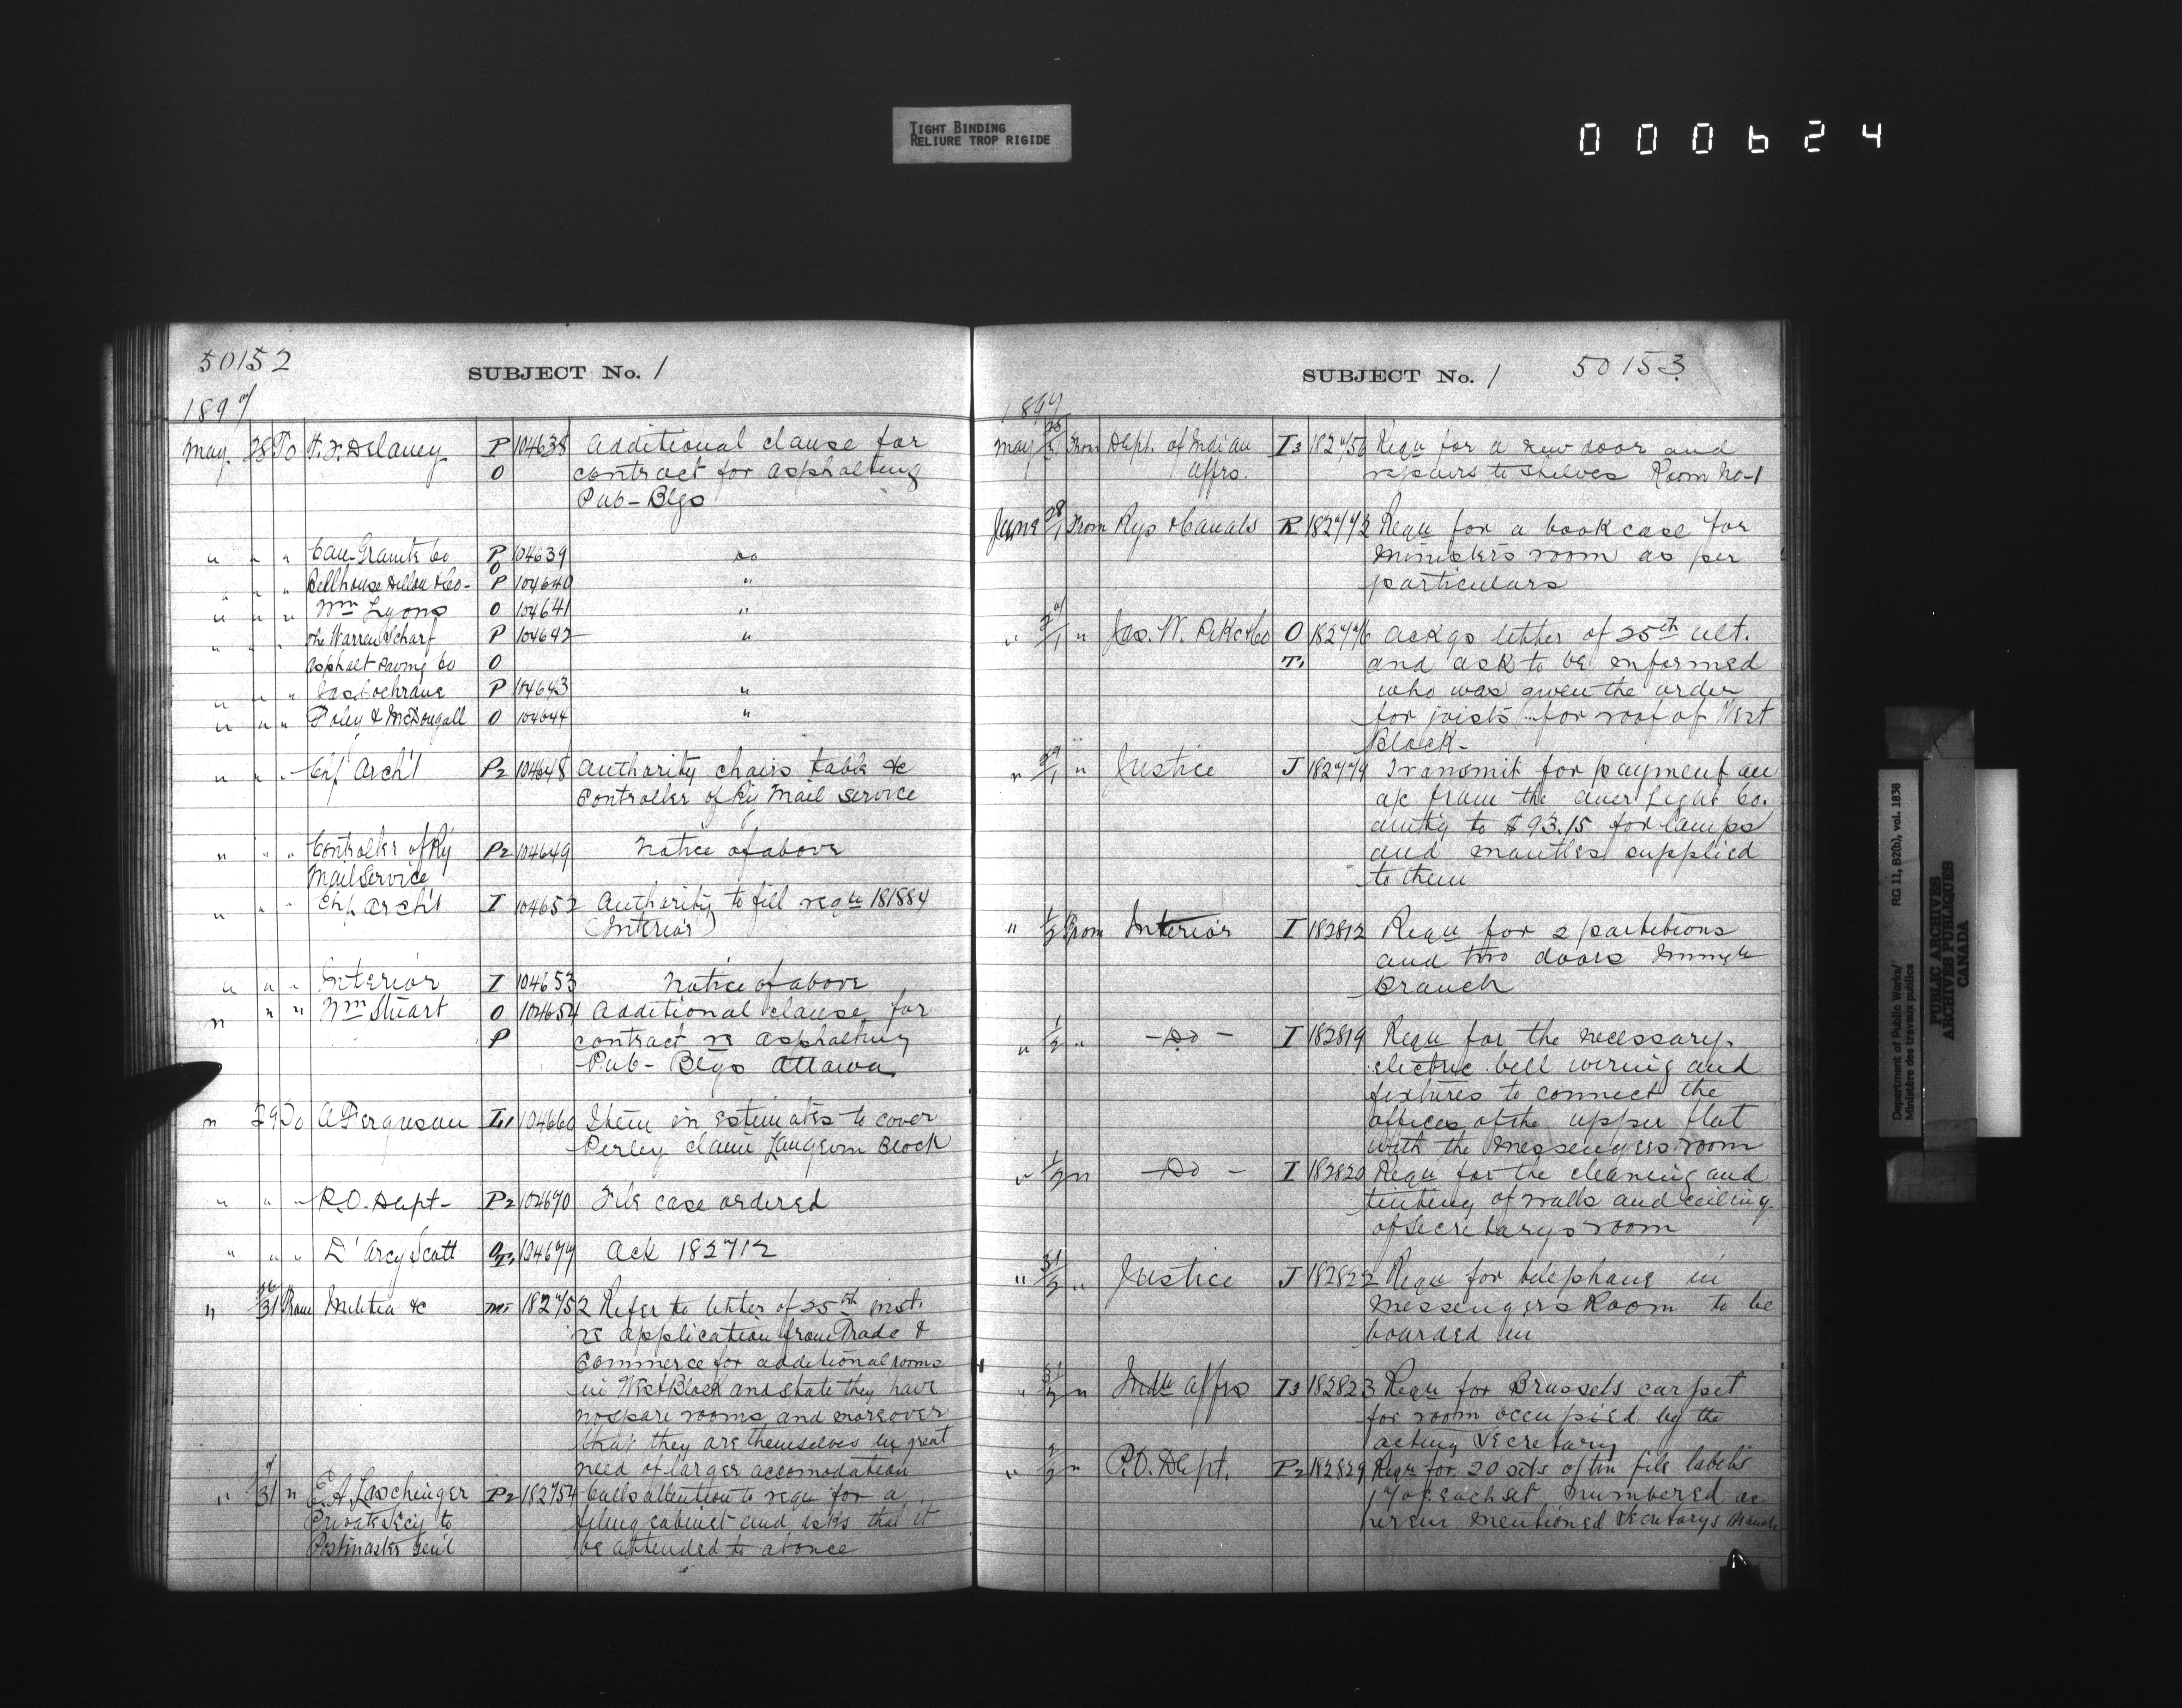 TIGHT BINDING
RELIURE TROP RIGIDE
000624
50152
SUBJECT No. 1
1897
May 28 To T. F. Delaney P 104638 Additional clause for
O contract for asphalting
Pub- Blgs
" " " Can. Granite Co P 104639 do
O
" " " Bellhouse Dillon & Co- P 104640 "
" " " Wm Lyons O 104641 "
" " " The Warren Scharf P 104642 "
Asphalt Paving Co O
" " " Jas Cochrane P 104643 "
" " " Foley & McDougall O 104644 "
" " " Chf Arch't P2 104648 Authority chairs table &c
Controller of Ry Mail Service
" " " Controller of Ry P2 104649 Notice of above
Mail Service
" " " Chf. Arch't I 104652 Authority to fill reqn 181884
(Interior)
" " " Interior I 104653 Notice of above
" " " Wm Stuart O 104654 Additional clause for
P contract re asphalting
Pub- Blgs Ottawa
" 29 Do A Ferguson L1 104660 Item in estimates to cover
Perley claim Langevin Block
" " " P.O. Dept- P2 104670 File case ordered
" " " D'Arcy Scott 104677 Ack 182712
" 31 From Militia &c M1 182752 Refer to letter of 25th inst.
re application from Trade &
Commerce for additional rooms
in West Block and state they have
no spare rooms and moreover
that they are themselves in great
need of larger accomodation
" 31 " E. A. Laschinger P2 182754 Calls attention to reqn for a
Private Secy to filing cabinet and asks that it
Postmaster Gen'l be attended to at once
SUBJECT No. 1
50153
1897
May From Dept. of Indian I3 182756 Reqn for a new door and
Affrs. repairs to shelves Room No-1
June 28/1 From Rys & Canals R 182772 Reqn for a bookcase for
Minister's room as per
particulars
" 27/1 " Jas. W. Pike & Co O 182776 Ackgs letter of 25th ult.
T1 and ask to be informed
who was given the order
for joists for roof of West
Block-
" 29/1 " Justice J 182779 Transmit for payment an
a/c from the Auer Light Co.
amtg to $93.15 for lamps
and mantles supplied
to them
" 1/2 From Interior I 182812 Reqn for 2 partitions
and two doors Immgn
Branch
" 1/2 " -Do- I 182819 Reqn for the necessary
electric bell wiring and
fixtures to connect the
offices of the upper flat
with the messengers room
" 1/2 " -Do- I 182820 Reqn for the cleaning and
tinting of walls and ceiling
of Secretarys room
" 31/2 " Justice J 182822 Reqn for telephone in
Messengers Room to be
boarded in
" 31/2 " Indn Affrs I3 182823 Reqn for Brussels carpet
for room occupied by the
acting Secretary
" 2/2 " P.O. Dept. P2 182829 Reqn for 20 sets of tin file labels
17 of each set numbered as
herein mentioned Secretarys Branch
Department of Public Works/
Ministère des travaux publics
RG 11, B2(b), vol. 1838
PUBLIC ARCHIVES
ARCHIVES PUBLIQUES
CANADA